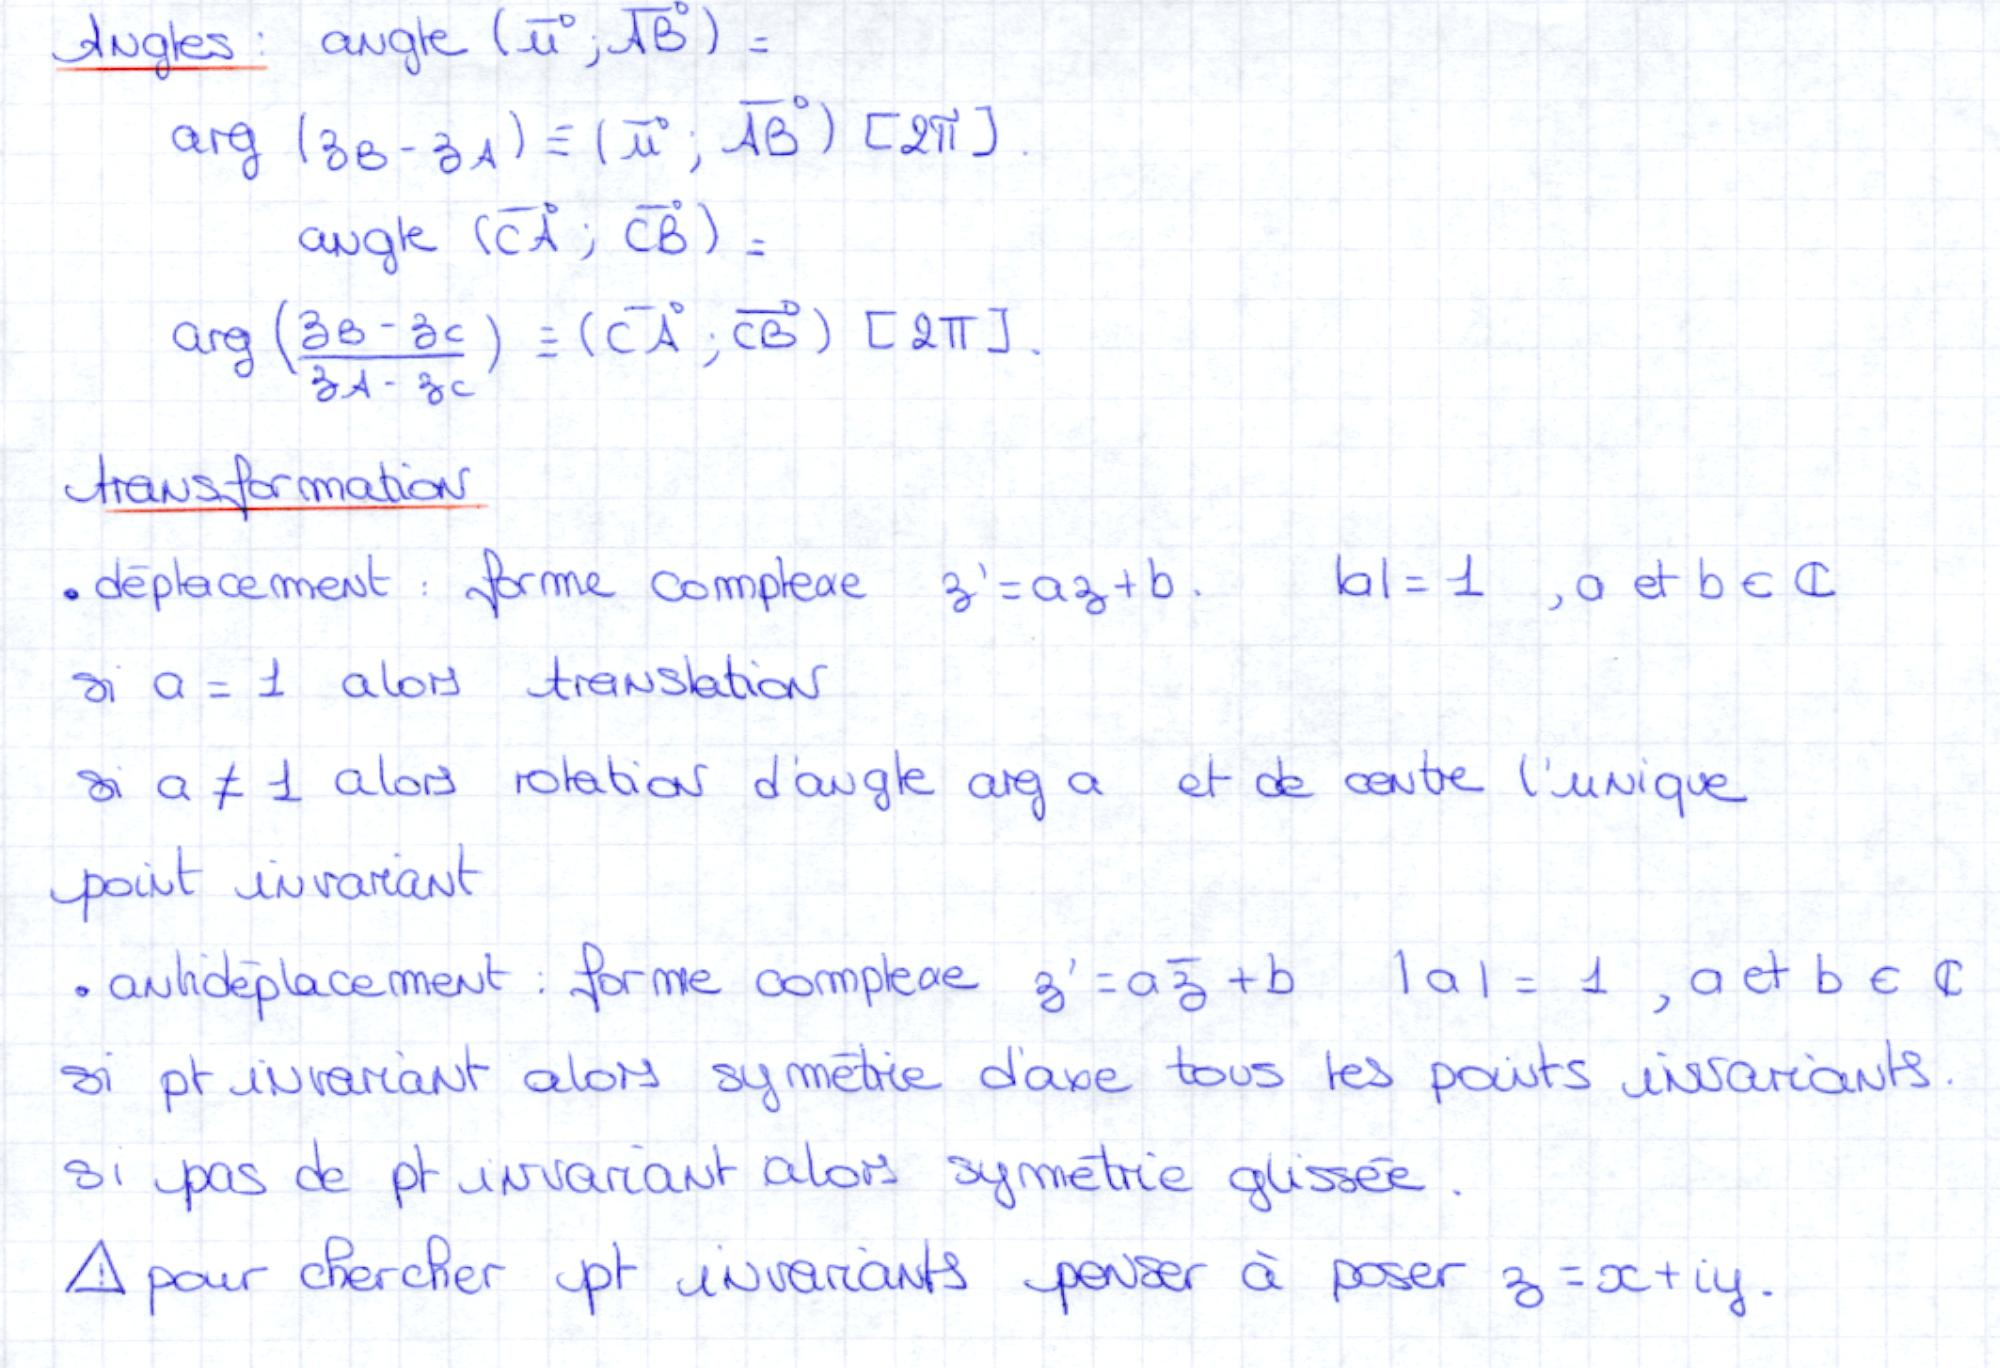 Angles : angle (u⃗ ; AB⃗) =
arg (zB - zA) ≡ (u⃗ ; AB⃗) [2π].
angle (CA⃗ ; CB⃗) =
arg ((zB - zC)/(zA - zC)) ≡ (CA⃗ ; CB⃗) [2π].
transformation
• déplacement : forme complexe z' = az + b. |a| = 1 , a et b ∈ ℂ
si a = 1 alors translation
si a ≠ 1 alors rotation d'angle arg a et de centre l'unique
point invariant
• antidéplacement : forme complexe z' = az̄ + b |a| = 1 , a et b ∈ ℂ
si pt invariant alors symétrie d'axe tous les points invariants.
si pas de pt invariant alors symétrie glissée.
⚠ pour chercher pt invariants penser à poser z = x + iy.